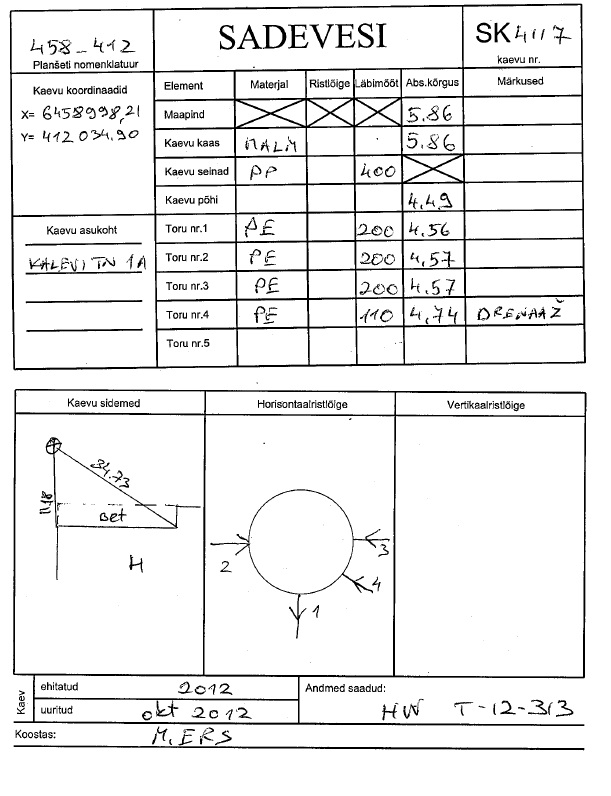 458-412
Planšeti nomenklatuur
SADEVESI
SK 4117
kaevu nr.
Kaevu koordinaadid
X= 6458998,21
Y= 412 034,90
Element Materjal Ristlõige Läbimõõt Abs.kõrgus Märkused
Maapind 5.86
Kaevu kaas MALM 5.86
Kaevu seinad PP 400
Kaevu põhi 4.49
Kaevu asukoht
KALEVI TN 1A
Toru nr.1 PE 200 4.56
Toru nr.2 PE 200 4,57
Toru nr.3 PE 200 4.57
Toru nr.4 PE 110 4,74 DRENAAŽ
Toru nr.5
Kaevu sidemed Horisontaalristlõige Vertikaalristlõige
34.73
11.18
bet
H
2
3
4
1
Kaev
ehitatud 2012
uuritud okt 2012
Andmed saadud:
HW T-12-313
Koostas: M. ERS